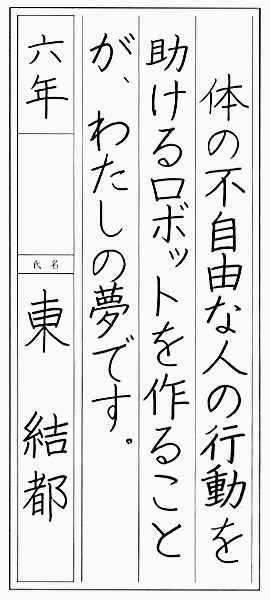 体の不自由な人の行動を
助けるロボットを作ること
が、わたしの夢です。
六年
氏名
東 結都